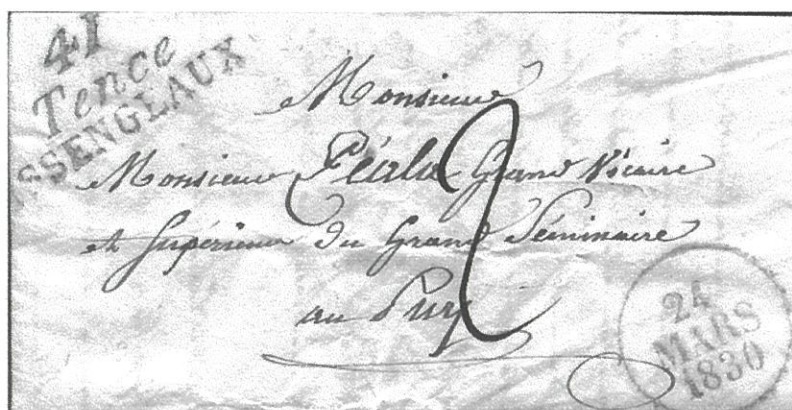 41
Tence
SSENGEAUX
Monsieur
Monsieur Péala Grand Vicaire
et Supérieur du Grand Séminaire
au Puy
2
24
MARS
1830